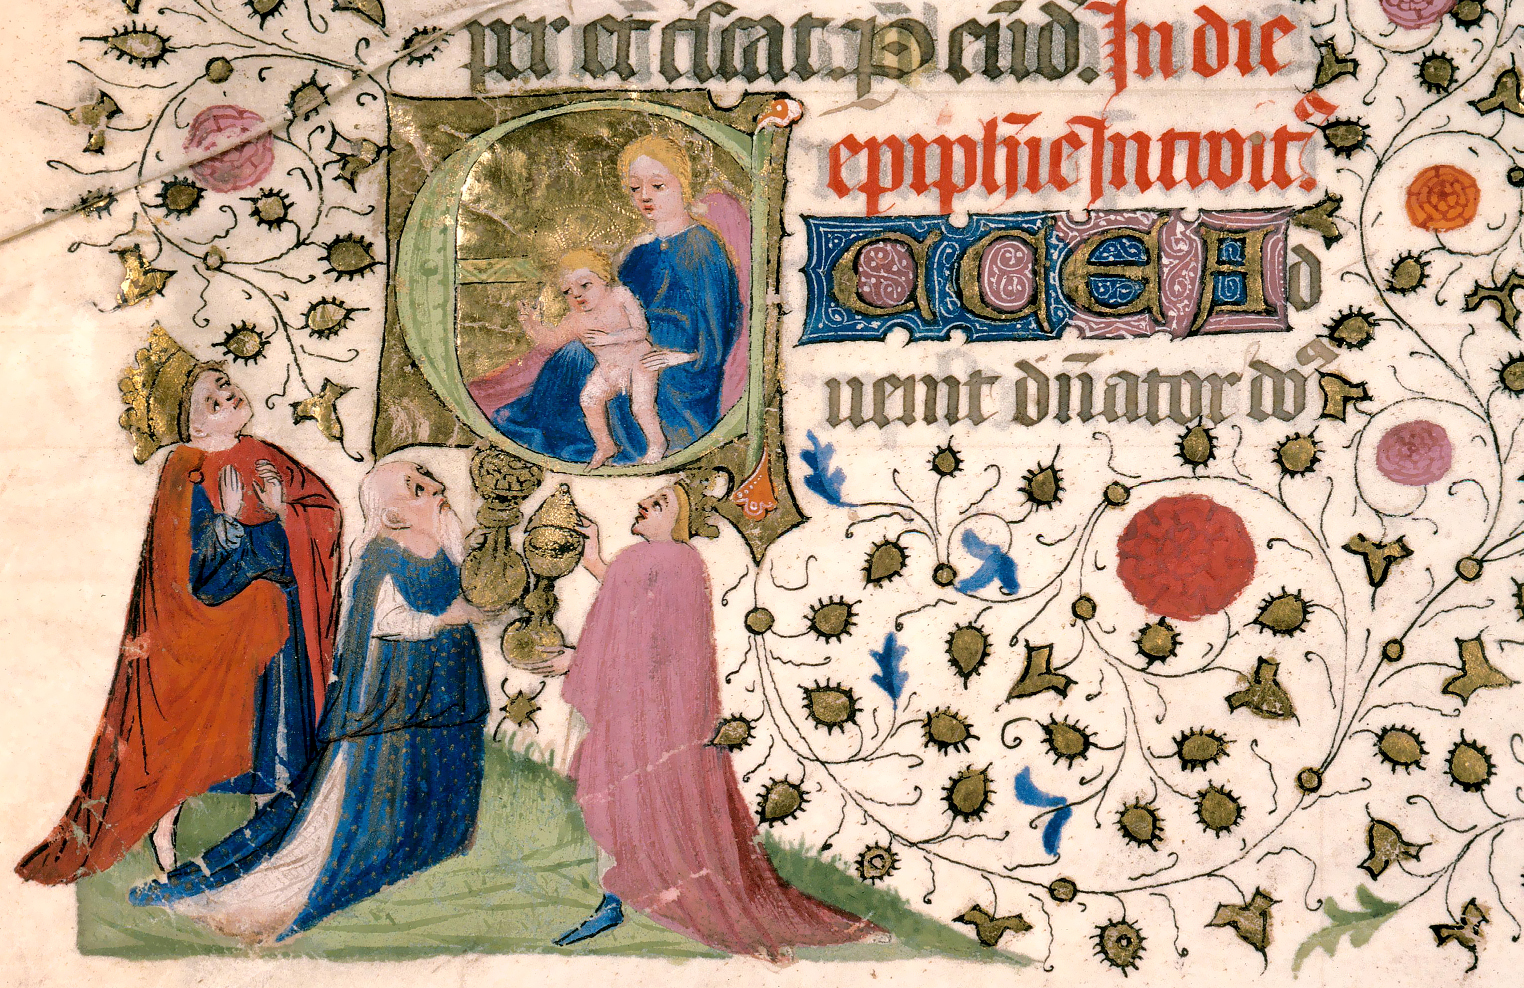 et crescat. P eūd. In die
epiph̄ie Introitꝰ.
E CCE Ad
uenit dn̄ator do᷒